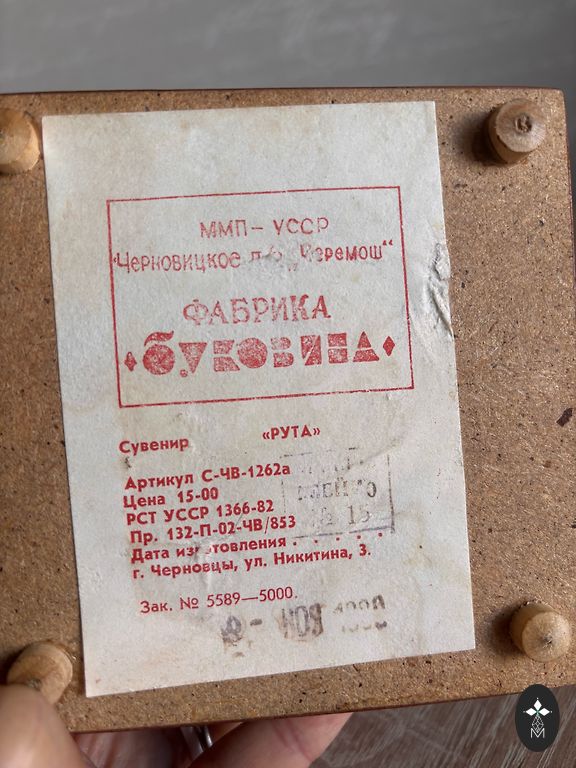 ММП – УССР
"Черновицкое п/о „Черемош"
ФАБРИКА
БУКОВИНА
Сувенир «РУТА»
Артикул С-ЧВ-1262а
Цена 15-00
РСТ УССР 1366-82
Пр. 132-П-02-ЧВ/853
Дата изготовления . . . . .
г. Черновцы, ул. Никитина, 3.
Зак. № 5589—5000.
НОЯ 1990
M